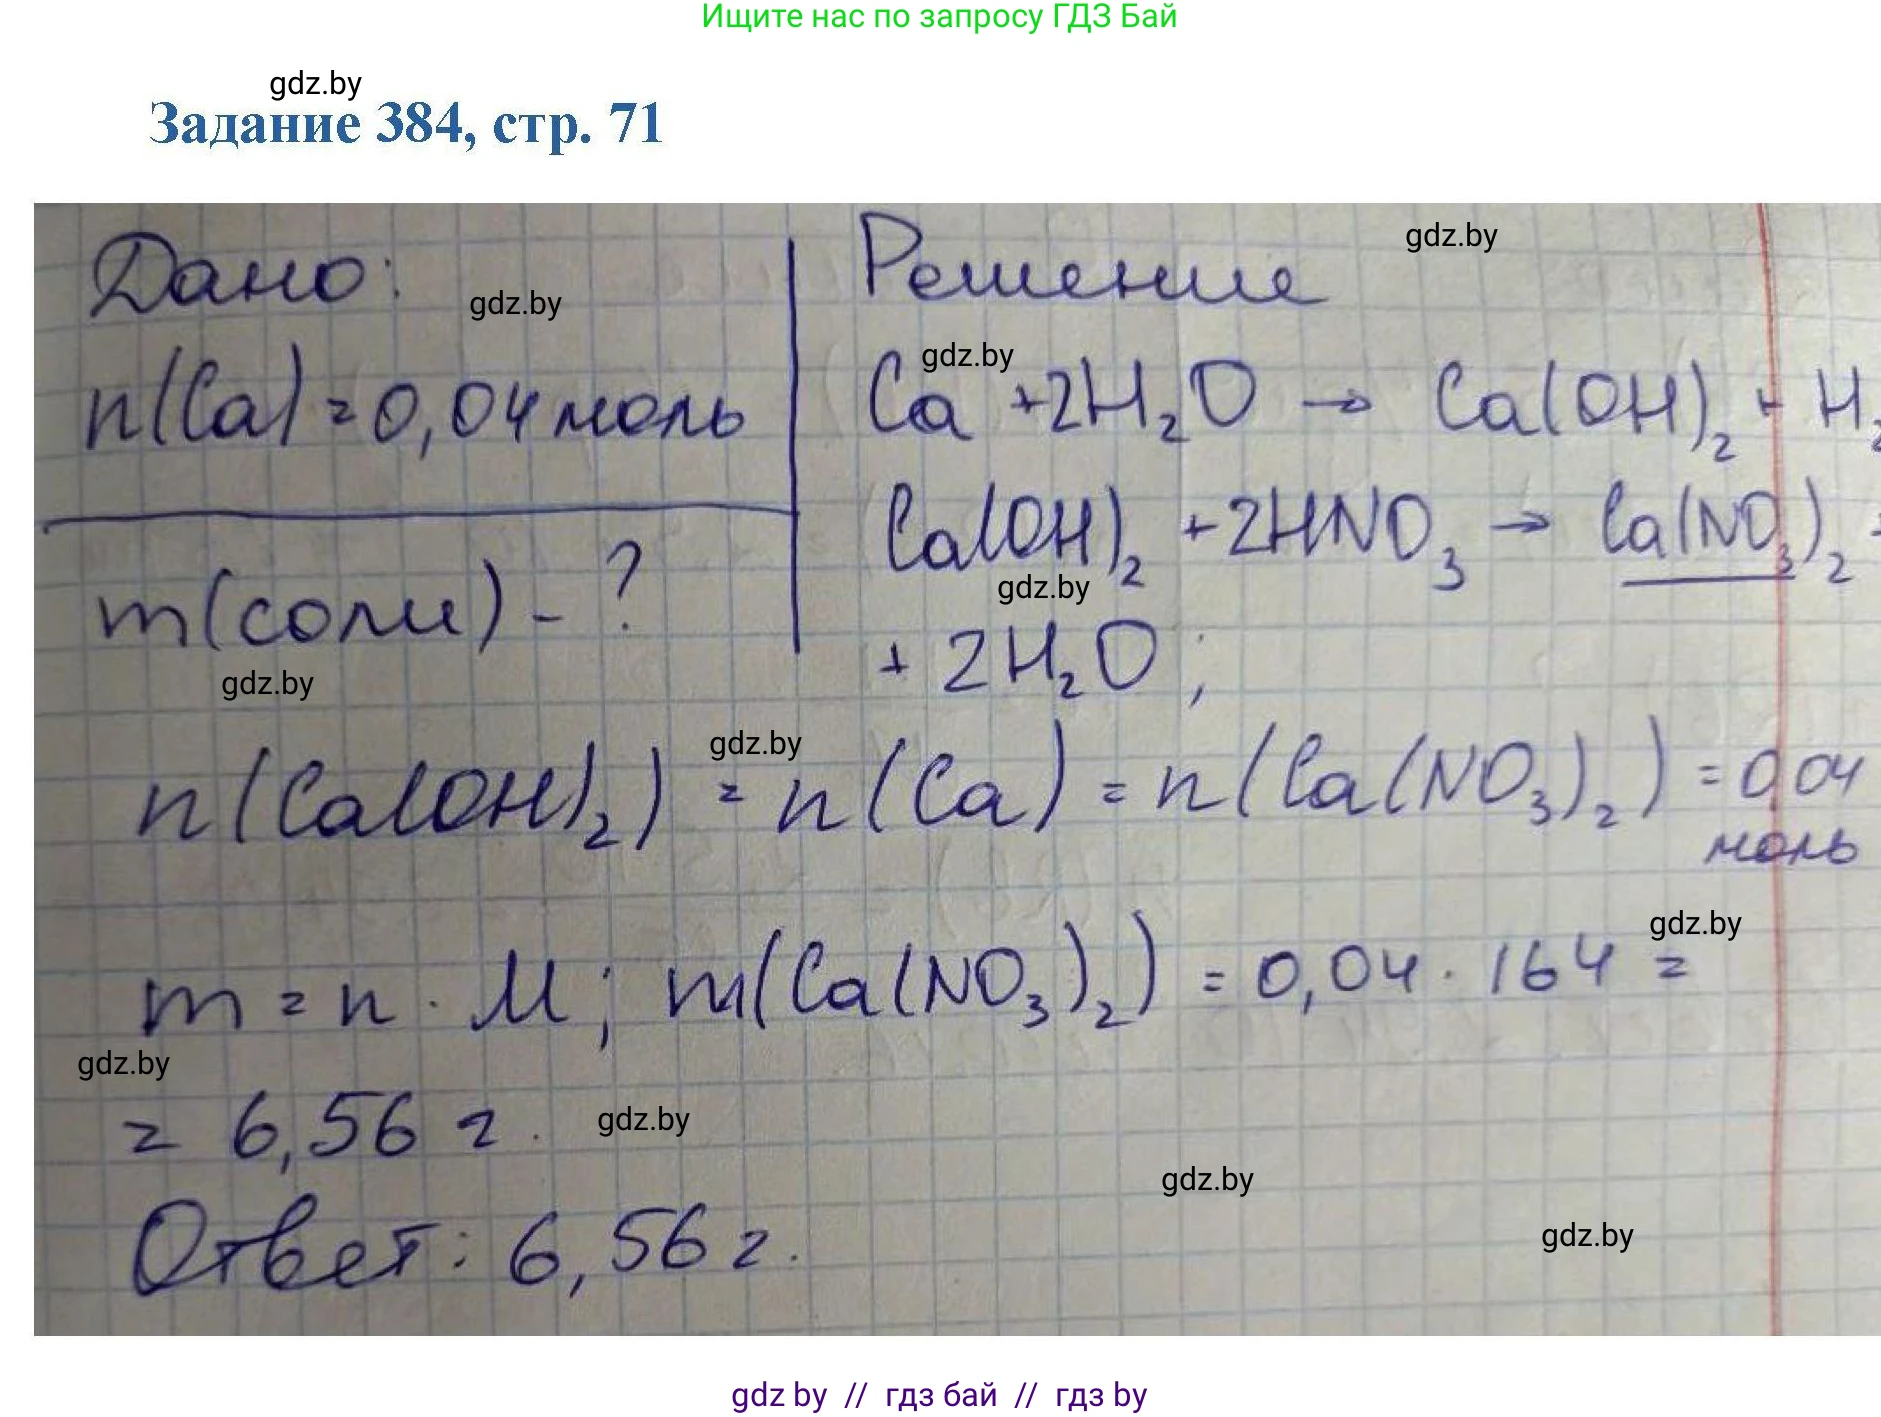 Ищите нас по запросу ГДЗ Бай
gdz.by
Задание 384, стр. 71
Дано:
gdz.by
n(Ca) = 0,04 моль
m(соли) - ?
gdz.by
Решение
gdz.by
gdz.by
Ca + 2H₂O → Ca(OH)₂ + H₂
Ca(OH)₂ + 2HNO₃ → Ca(NO₃)₂ +
gdz.by
+ 2H₂O ;
gdz.by
n(Ca(OH)₂) = n(Ca) = n(Ca(NO₃)₂) = 0,04
моль
gdz.by
m = n · M ; m(Ca(NO₃)₂) = 0,04 · 164 =
gdz.by
= 6,56 г.
gdz.by
gdz.by
Ответ: 6,56 г.
gdz.by
gdz by // гдз бай // гдз by